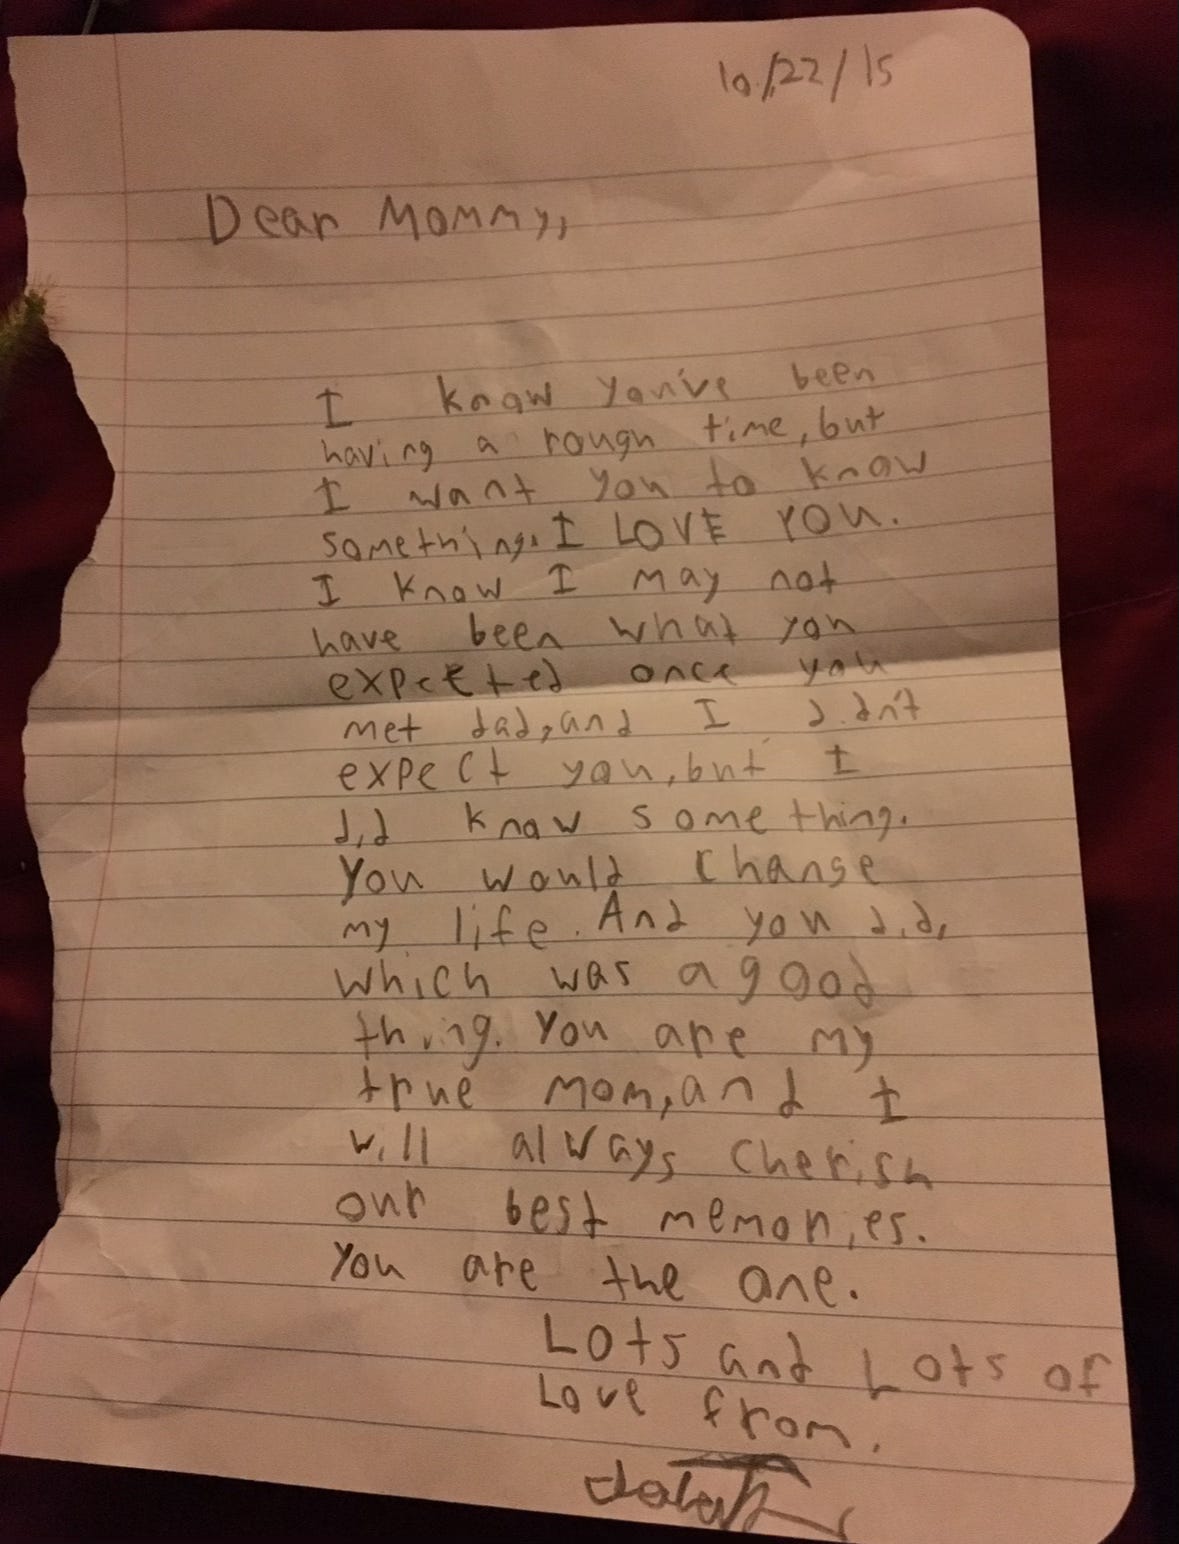 10/22/15
Dear Mommy,
I know you've been
having a rough time, but
I want you to know
something. I LOVE YOU.
I know I may not
have been what you
expected once you
met dad, and I didn't
expect you, but I
did know something.
You would change
my life. And you did,
which was a good
thing. You are my
true mom, and I
will always cherish
our best memories.
You are the one.
Lots and Lots of
Love from,